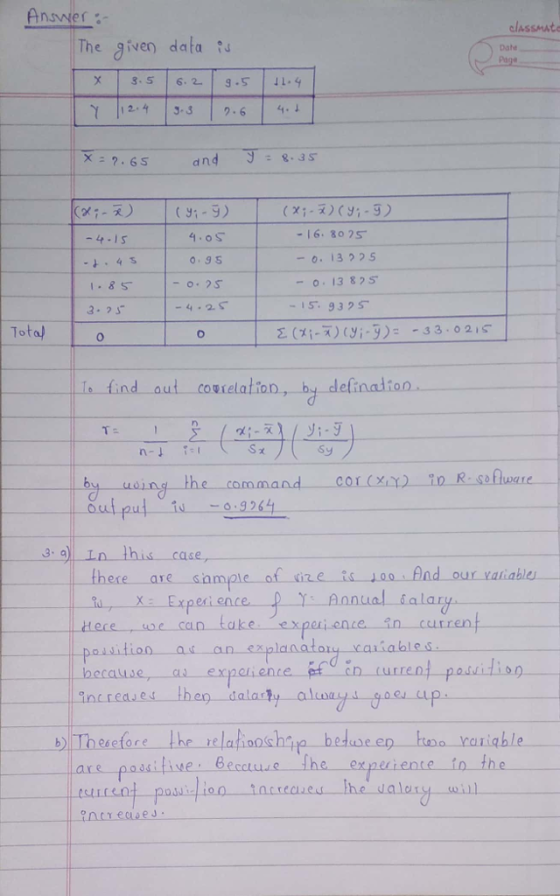 Answer :-
classmate
Date
Page
The given data is
X 3.5 6.2 9.5 11.4
Y 12.4 9.3 7.6 4.1
x̄ = 7.65 and ȳ = 8.35
(xi - x̄) (yi - ȳ) (xi - x̄)(yi - ȳ)
-4.15 4.05 -16.8075
-1.45 0.95 -0.13775
1.85 -0.75 -0.13875
3.75 -4.25 -15.9375
Total 0 0 Σ(xi - x̄)(yi - ȳ) = -33.0215
To find out correlation, by defination.
r = 1/(n-1) Σ_{i=1}^{n} ((xi - x̄)/Sx) ((yi - ȳ)/Sy)
by using the command cor(X,Y) in R-software
output is -0.9764
3. a) In this case,
there are sample of size is 100. And our variables
is, X = Experience & Y = Annual salary.
Here, we can take experience in current
possition as an explanatory variables.
because, as experience in current possition
increases then salary always goes up.
b) Therefore the relationship between two variable
are possitive. Because the experience in the
current possi-tion increases the salary will
increases.